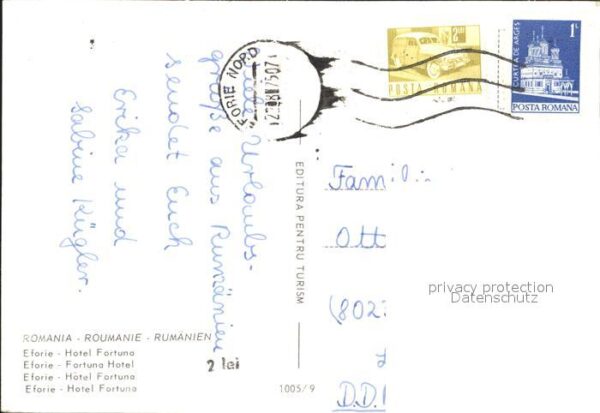 Viele Urlaubs-
grüße aus Rumänien
sendet Euch
Erika und
Sabine Kügler.
EFORIE NORD
2 LEI
POSTA ROMANA
1L
CURTEA DE ARGES
POSTA ROMANA
EDITURA PENTRU TURISM
Famil
Ott
(802
D.D.
privacy protection
Datenschutz
ROMANIA - ROUMANIE - RUMÄNIEN
Eforie - Hotel Fortuna
Eforie - Fortuna Hotel
Eforie - Hôtel Fortuna
Eforie - Hotel Fortuna
2 lei
1005/9